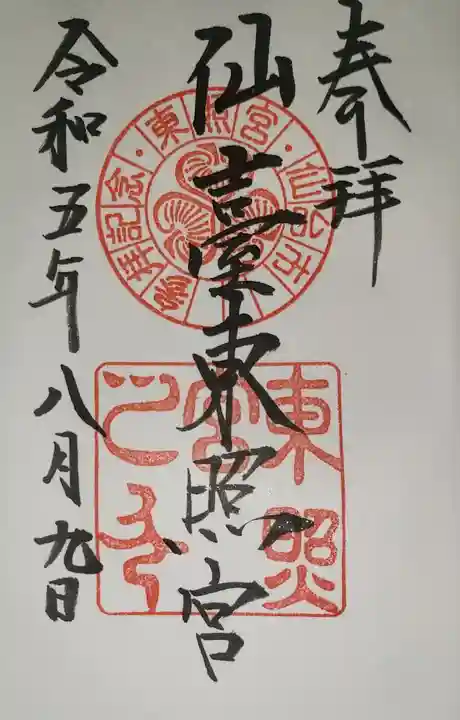 奉拝
仙臺東照宮
令和五年八月九日
東照宮・仙臺市
参拝記念・
東照
宮
之印